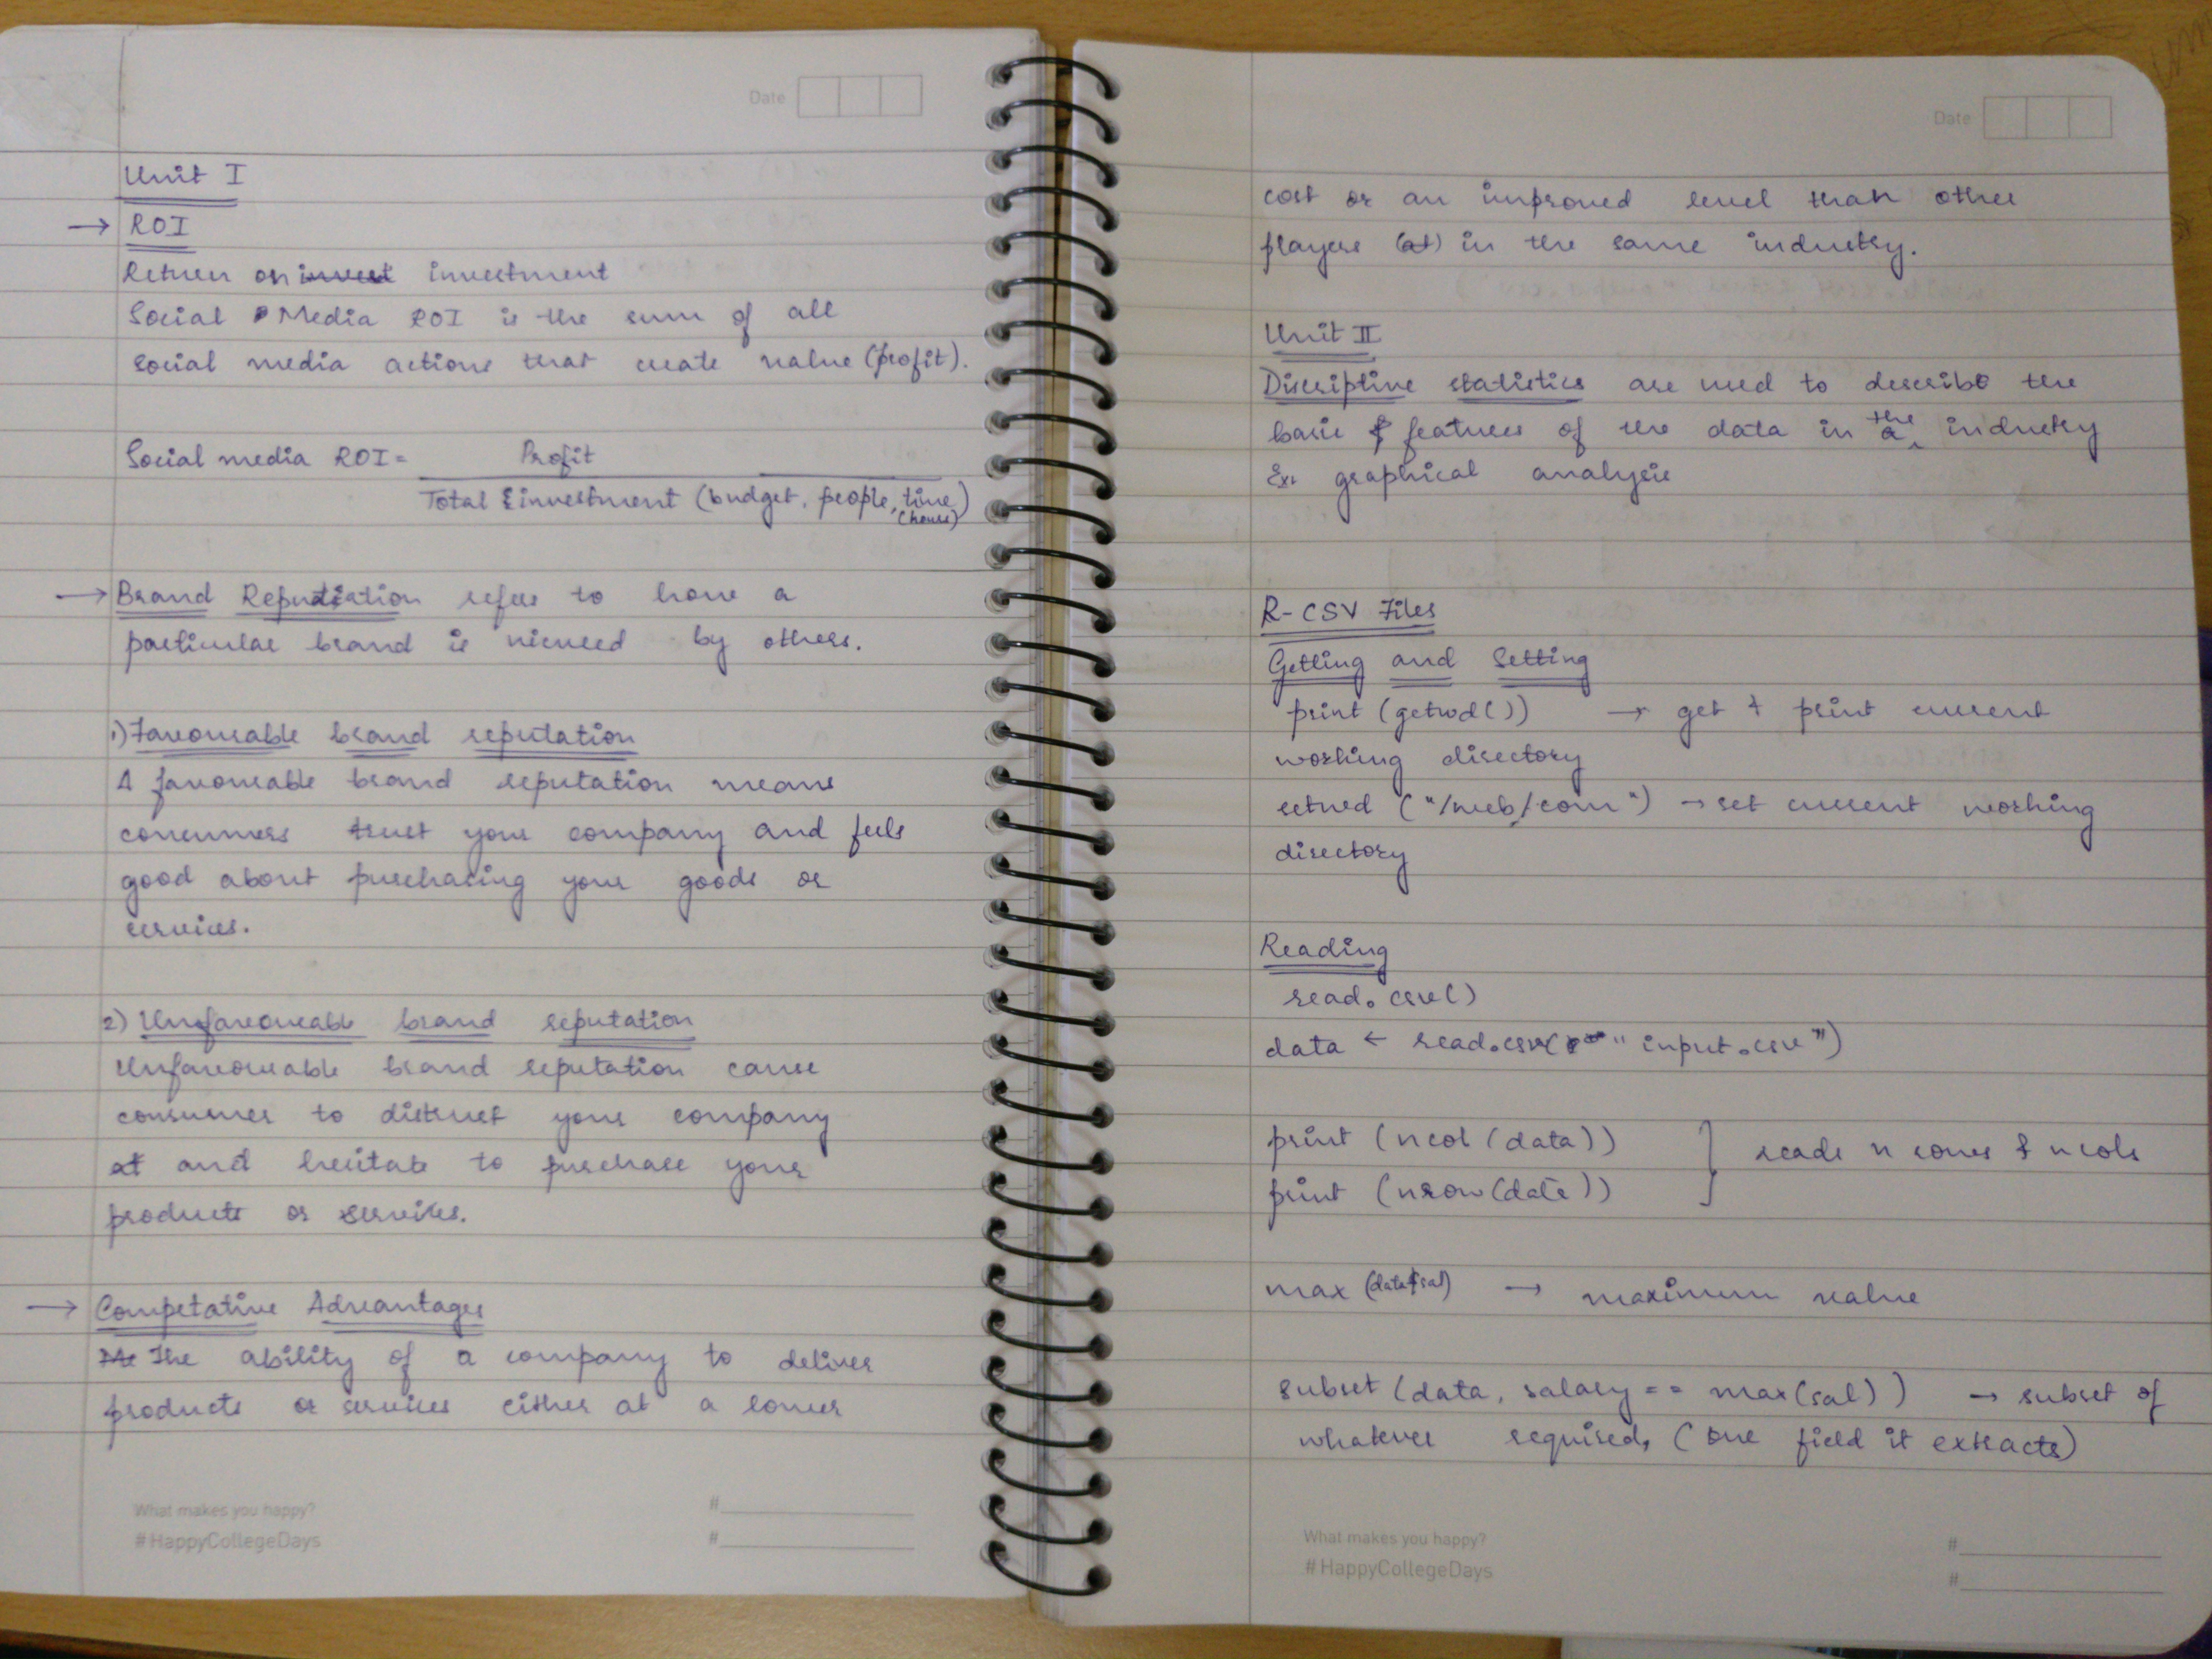 Date
Unit I
→ ROI
Return on invest investment
Social Media ROI is the sum of all
social media actions that create value (profit).
Social media ROI = Profit
Total investment (budget, people, time)
(hours)
→ Brand Reputation refers to how a
particular brand is viewed by others.
1) Favourable brand reputation
A favourable brand reputation means
consumers trust your company and feels
good about purchasing your goods or
services.
2) Unfavourable brand reputation
Unfavourable brand reputation cause
consumers to distrust your company
at and hesitate to purchase your
products or services.
→ Competative Advantages
The ability of a company to deliver
products or services either at a lower
What makes you happy?
#HappyCollegeDays
#
#
Date
cost or an improved level than other
players (at) in the same industry.
Unit II
Discriptive statistics are used to describe the
basic features of the data in a the industry
Ex. graphical analysis
R-CSV Files
Getting and Setting
print (getwd()) → get & print current
working directory
setwd ("/web/com") → set current working
directory
Reading
read.csv()
data ← read.csv("input.csv")
print (ncol (data))
print (nrow (date)) } reads n rows & n cols
max (data$sal) → maximum value
subset (data, salary == max(sal)) → subset of
whatever required, (one field it extracts)
What makes you happy?
#HappyCollegeDays
#
#